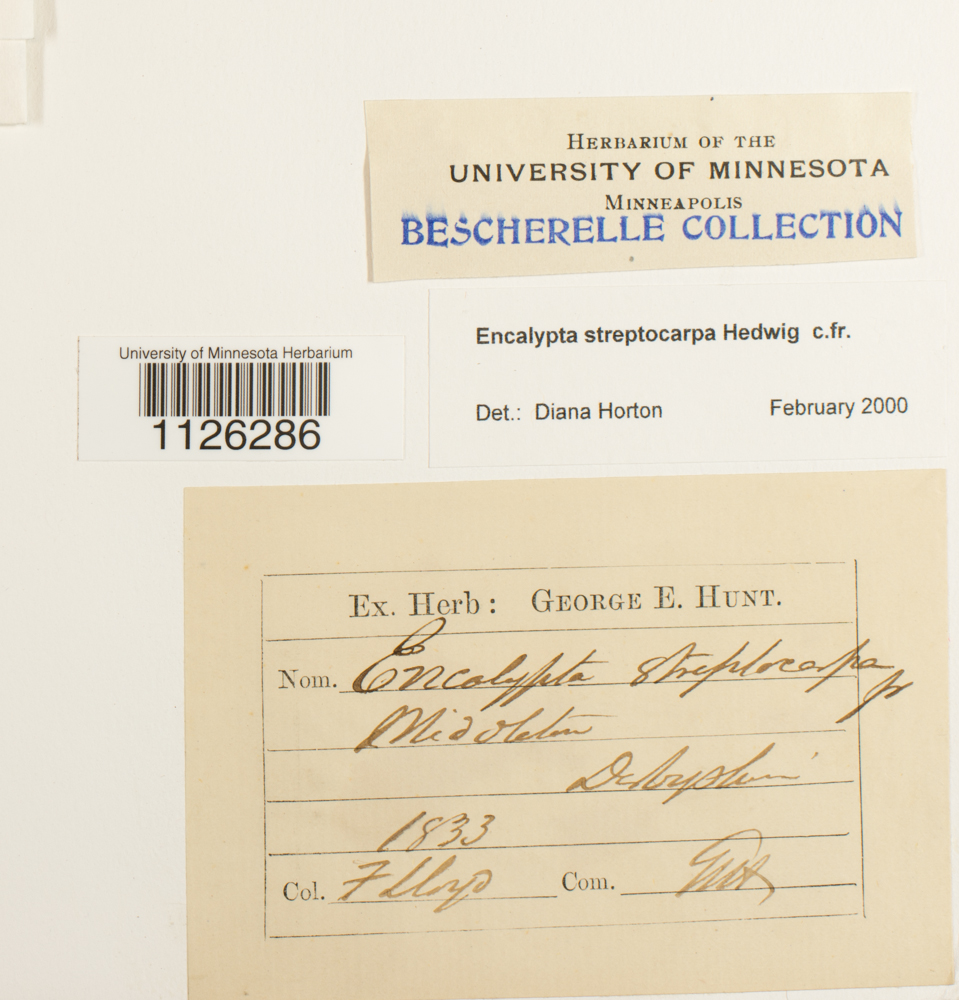 HERBARIUM OF THE
UNIVERSITY OF MINNESOTA
MINNEAPOLIS
BESCHERELLE COLLECTION
Encalypta streptocarpa Hedwig c.fr.
Det.: Diana Horton February 2000
University of Minnesota Herbarium
1126286
Ex. Herb: GEORGE E. HUNT.
Nom. Encalypta streptocarpa
fr
Middleton
Derbyshire
1833
Col. F Lloyd Com.